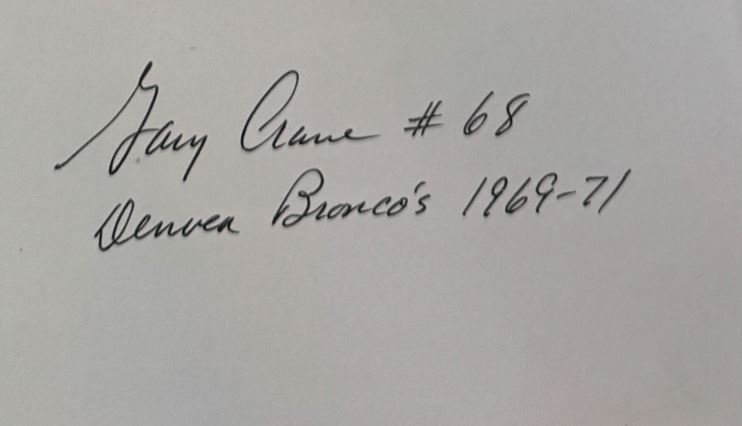 Gary Crane # 68
Denver Bronco's 1969-71